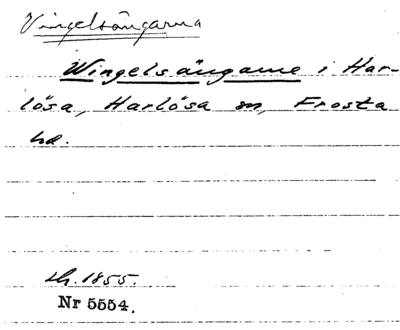 Vingelsängarna
Wingelsängarne i Har-
lösa, Harlösa sn, Frosta
hd.
Lh. 1855.
Nr 5554.